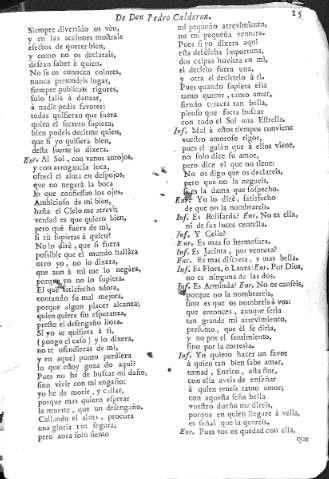 De Don Pedro Calderon. 15
Siempre divertido os veo,
y en las acciones mostrais
efectos de querer bien,
y como no os declarais,
desean saber à quien.
No se os conocen colores,
nunca pretendeis lugar,
siempre publicais rigores,
solo salis à danzar,
à nadie pedis favores:
todas quisieran que fuera
quien el secreto supiera;
bien podeis decirme quien,
que si yo quisiera bien,
desta suerte lo dixera.
Enr. Al Sol, con vanos antojos,
y con arrogancia loca,
ofreci el alma en despojos,
que no negarà la boca
lo que confiessan los ojos.
Ambicioso de mi bien,
hasta el Cielo me atrevi;
verdad es que quiero bien,
pero què fuera de mi,
si tù supieras à quien?
No lo dirè, que si fuera
possible que el mundo hallàra
otro yo, no lo dixera,
que aun à mi me lo negàra,
porque yo no lo supiera.
El que satisfecho adora,
contando su mal mejora,
porque algun placer alcanza;
quien quiere sin esperanza,
presto el desengaño llora.
Si yo te quisiera à ti,
(pongo el caso) y lo dixera,
no te ofendieras de mi,
y en aquel punto perdiera
lo que estoy goza do aqui?
Pues no he de buscar mi daño,
sino vivir con mi engaño:
yo he de morir, y callar,
porque mas quiero esperar
la muerte, que un desengaño.
Callando el alma, procura
una gloria tan segura;
pero aora solo siento
mi pequeño atrevimiento,
no mi pequeña ventura.
Pues si yo dixera aqui
esta desdicha importuna,
dos culpas huviera en mi,
el decirlo fuera una,
y otra el decirtelo à ti.
Pues quando supiera ella
tanto querer, tanto amar,
siendo
que fuera buscar
con todo el Sol una Estrella.
Inf. Mal à estos tiempos conviene
vuestro amoroso rigor,
pues el galàn que à ellos viene,
no solo dice su amor,
pero dice el que no tiene:
No os digo que os declareis,
pero que no la negueis,
si es la dama que sospecho.
Enr. Yo lo dirè, satisfecho
de que no la nombrareis.
Inf. Es Belisarda? Enr. No es ella,
ni de sus luces centella.
Inf. Y Celia?
Enr. Es mas su hermosura.
Inf. Es Jacinta, por ventura?
Enr. Es mas discreta, y mas bella.
Inf. Es Flora, ò Laura? Enr. Por Dios,
no es ninguna de las dos.
Inf. Es Arminda? Enr. No os canseis,
porque no la nombrareis,
sino es que os nombreis à vos:
que entonces, aunque serìa
tan grande mi atrevimiento,
presumo, que èl se dirìa,
y no por el sentimiento,
sino por la cortesìa.
Inf. Yo quiero hacer un favor
à quien tan bien sabe amar,
tomad, Enrico, esta flor,
con ella aveis de enseñar
à quien teneis tanto amor;
con aquesta seña bella
vuestro dueño me direis,
porque en quien llegare à vella,
es señal que la quereis.
Enr. Pues vos os quedad con ella,
que